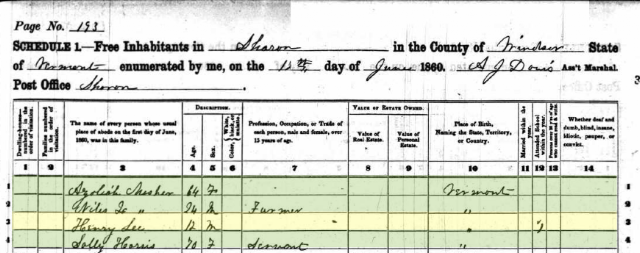 Page No. 193
SCHEDULE 1.—Free Inhabitants in Sharon in the County of Windsor State
of Vermont enumerated by me, on the 15th day of June 1860. A J Ass't Marshal.
Post Office Sharon.
3
Dwelling-houses numbered in the order of visitation.
Families numbered in the order of visitation.
The name of every person whose usual place of abode on the first day of June, 1860, was in this family.
DESCRIPTION.
Age.
Sex.
Color, White, black, or mulatto.
Profession, Occupation, or Trade of each person, male and female, over 15 years of age.
VALUE OF ESTATE OWNED.
Value of Real Estate.
Value of Personal Estate.
Place of Birth, Naming the State, Territory, or Country.
Married within the year.
Attended School within the year.
Whether deaf and dumb, blind, insane, idiotic, pauper, or convict.
1 2 3 4 5 6 7 8 9 10 11 12 13 14
1 64 F Vermont 1
2 " 24 M Farmer " 2
3 Henry Lee 12 M " 1 3
4 Sally Harris 70 F Servant " 4